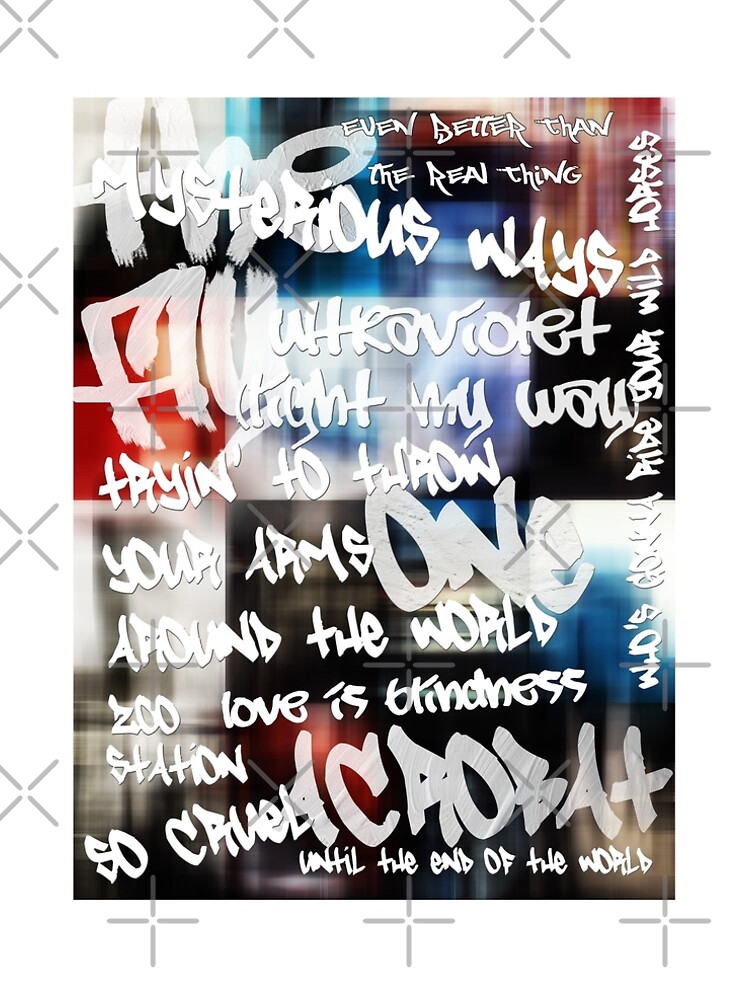 EVEN BETTER THAN
THE REAL THING
MYSTERIOUS WAYS
WHO'S GONNA RIDE YOUR WILD HORSES
FLY
ultraviolet
(light my way
TRYIN' TO THROW
YOUR ARMS
AROUND THE WORLD
ONE
ZOO
STATION
love is blindness
ACROBAT
SO CRUEL
UNTIL THE END OF THE WORLD